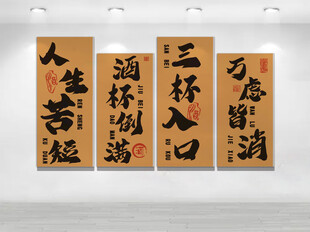 人生苦短
REN SHENG
KU DUAN
酒杯倒满
JIU BEI
DAO MAN
三杯入口
SAN BEI
RU KOU
万虑皆消
WAN
JIE XIAO